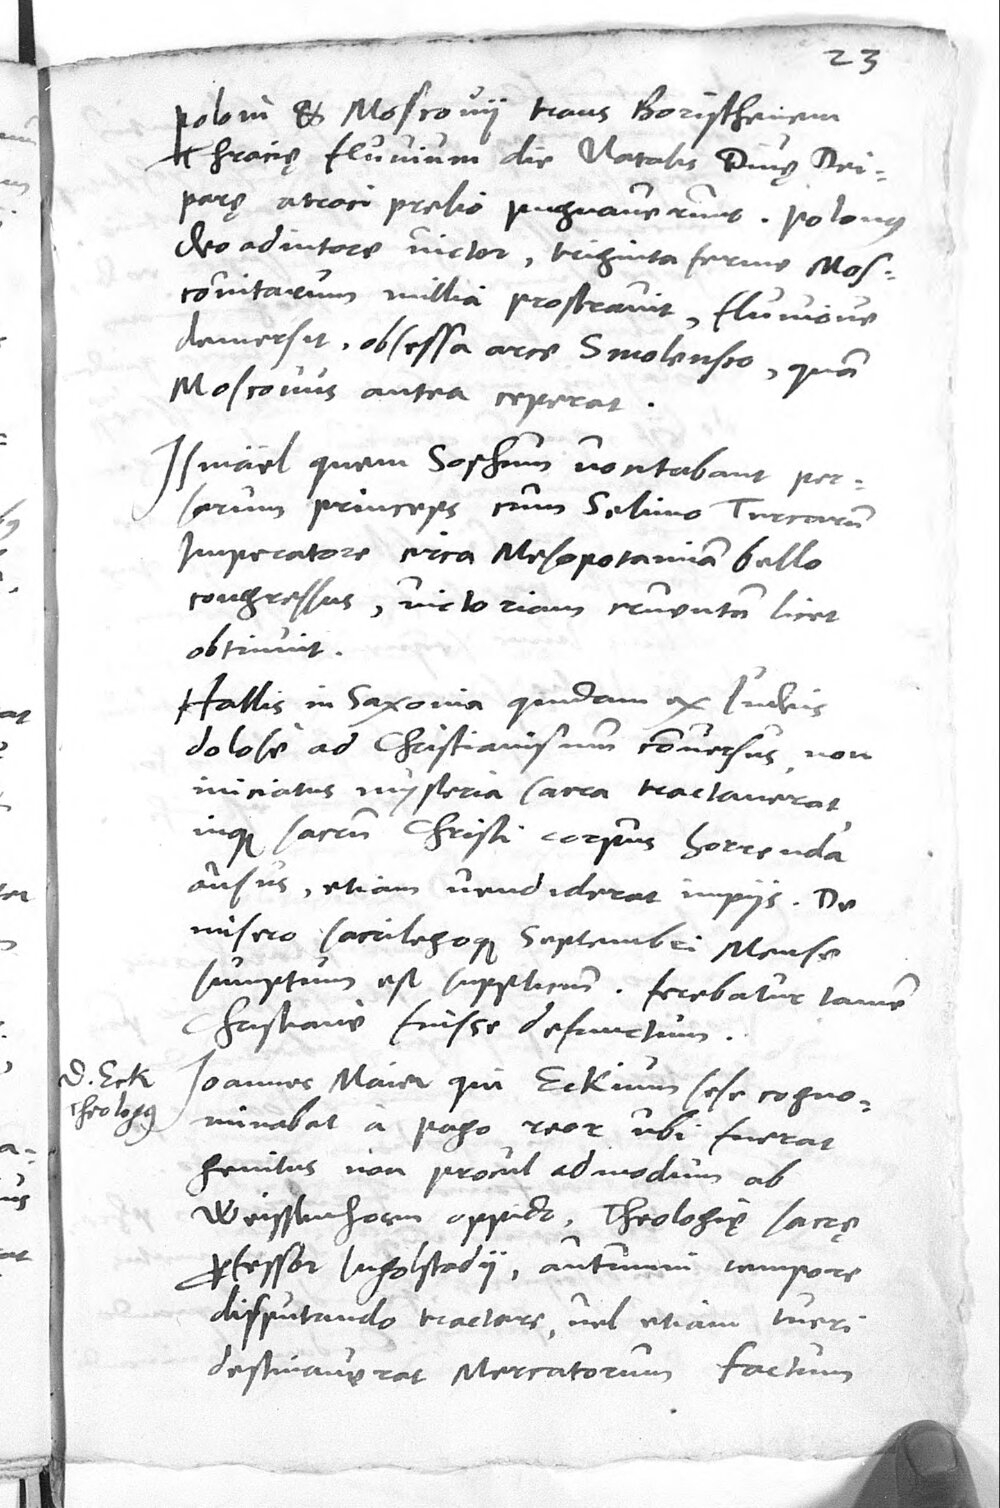 23
Poloni & Moscovij trans Boristhenem
Thracię fluvium die Natalis Divę Dei-
parę atroci prelio pugnaverunt. Polonus
deo adiutore victor, triginta ferme Mos-
covitarum millia prostravit, fluvione
demersit, obsessa arce Smolensco, quā
Moscovus antea ceperat.
Ismäel quem Sophum vocitabant per-
sarum princeps cum Selimo Turcarū
Imperatore circa Mesopotamiā bello
congressus, victoriam cruentā licet
obtinuit.
Hallis in Saxonia quidam ex Iudeis
dolose ad Christianismum cōversus, non
iniciatus mysteria sacra tractaverat,
inque sacrū Christi corpus horrenda
ausus, etiam vendiderat impijs. De
misero sacrilegoque Septembri Mense
sumptum est suppliciū. ferebatur tamē
Christiane fuisse defunctum.
D. Eck
Theologus
Ioannes Maier qui Eckium sese cogno-
minabat à pago reor ubi fuerat
genitus non procul admodum ab
Weisslenhorn oppido, Theologię sacrę
professor Ingolstadij, autumni tempore
disputando tractare, vel etiam tueri
destinaverat Mercatorum factum